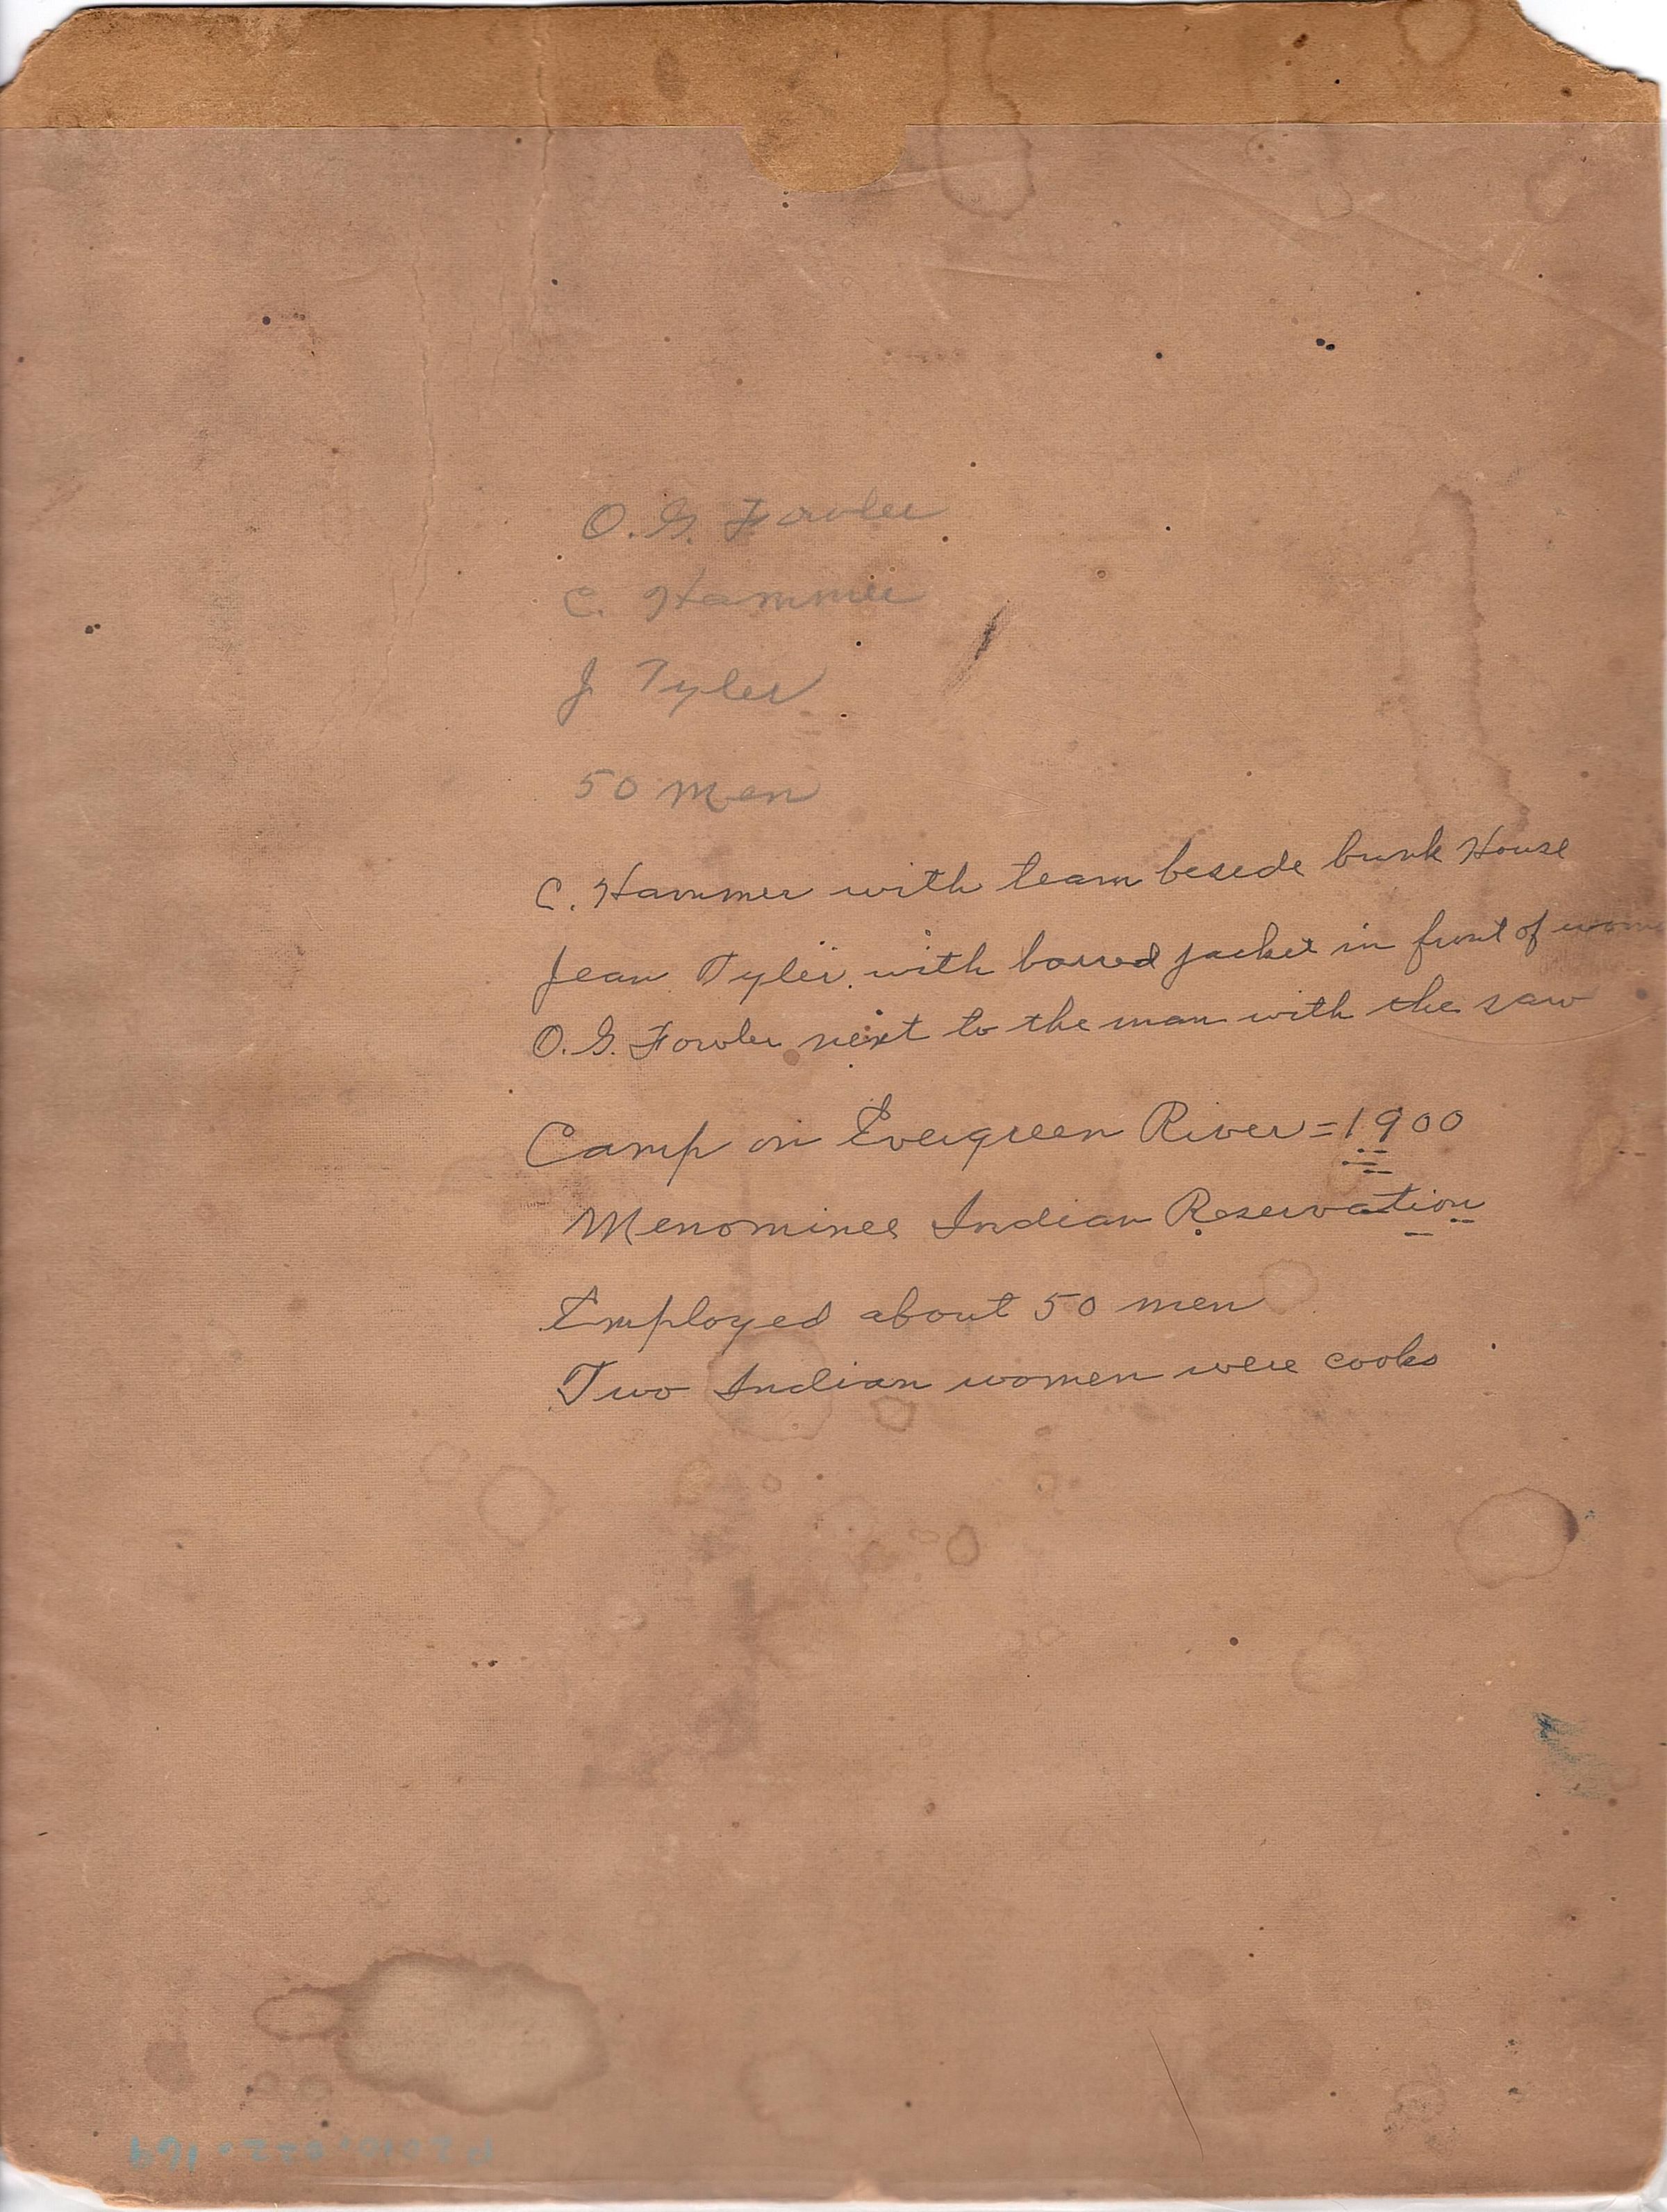 O. G. Fowler
C. Hammer
J Tyler
50 men
C. Hammer with team beside bunk House
Jean Tyler with barred jacket in front of
O. G. Fowler next to the man with the saw
Camp on Evergreen River = 1900
Menominee Indian Reservation
Employed about 50 men
Two Indian women were cooks